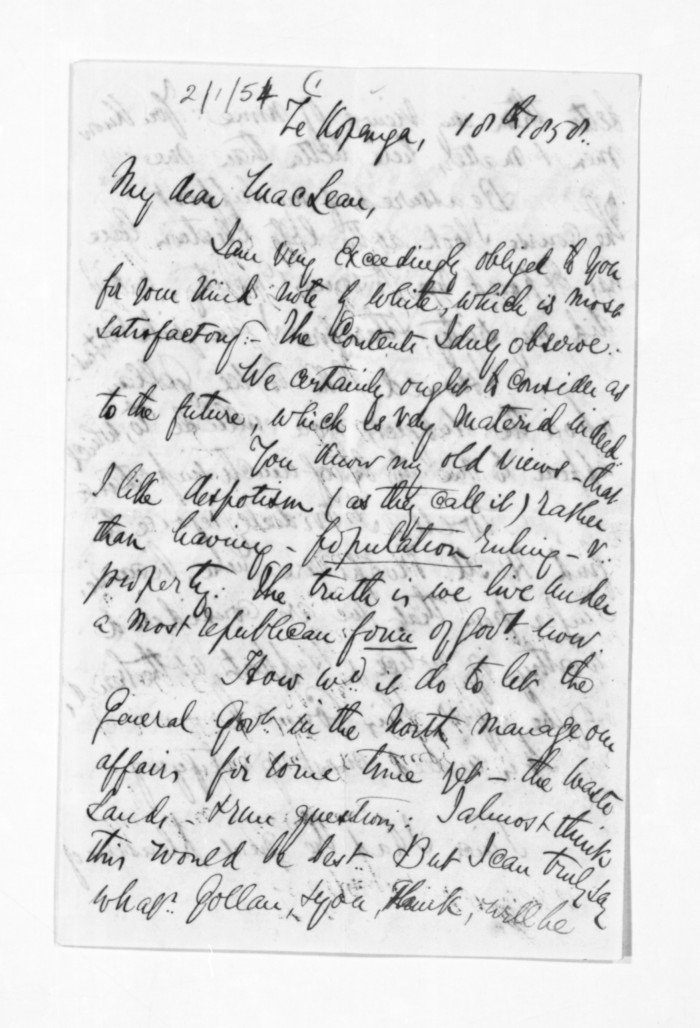 2/1/54
Te Kopanga, 18th/58.
My dear MacLean,
I am very exceedingly obliged to you
for your kind note of White, which is most
satisfactory. - The Contents I duly observe.
We certainly ought to consider as
to the future, which is very material indeed.
You know my old views - that
I like despotism (as they call it) rather
than having - population ruling - v.
property. The truth is we live under
a most republican form of Govt. now.
How wd. it do to let the
General Govt. in the North manage our
affairs for some time yet - the Waste
Lands - &
questions: I almost think
this would be best. But I can truly say
what Gollan, & you, think, will be